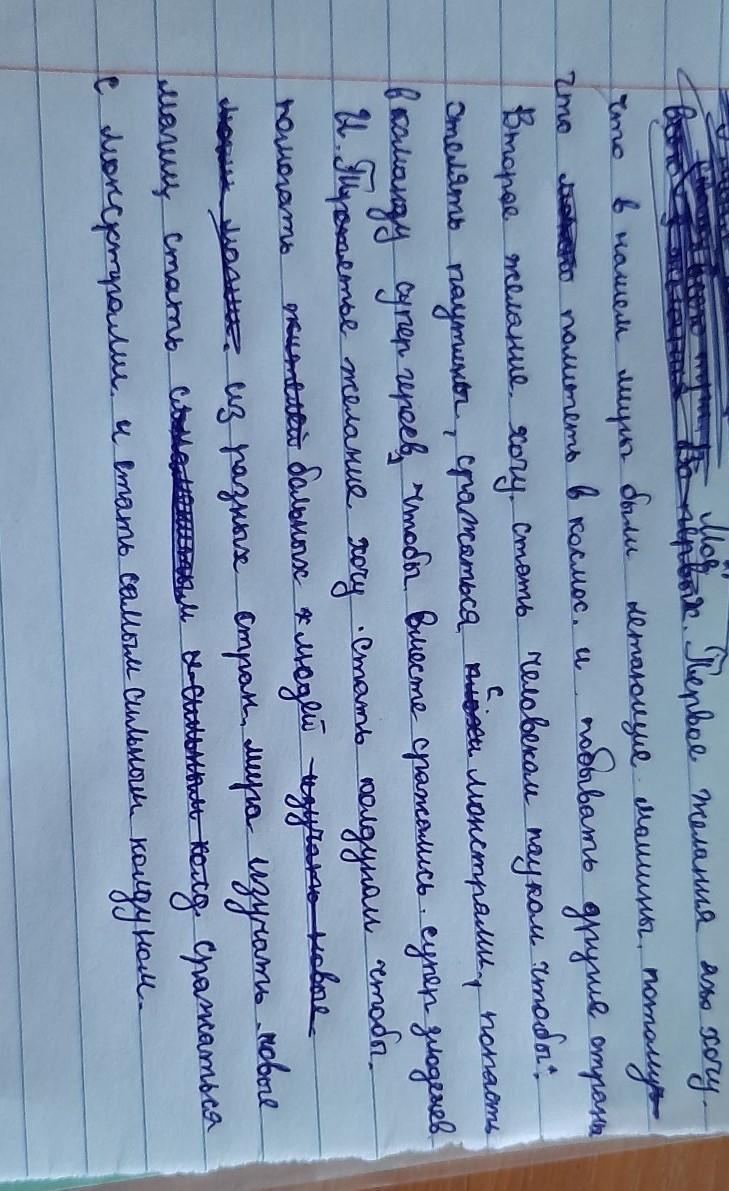 Моё первое желания это хочу.
что в нашем миры были летающие машины, потому
что полететь в космос. и побывать другие страны
Второе желание хочу стать человеком пауком чтобы
стелять паутины, сражаться с монстрами, попасть
в команду супер героев, чтобы вместе сражались супер злодеев
И. Третье желание хочу стать колдуном чтобы.
помогать больных людей
из разных стран, мира изучать новые
магии, стать сражаться
с монсртрами и стать самым сильным колдуном.